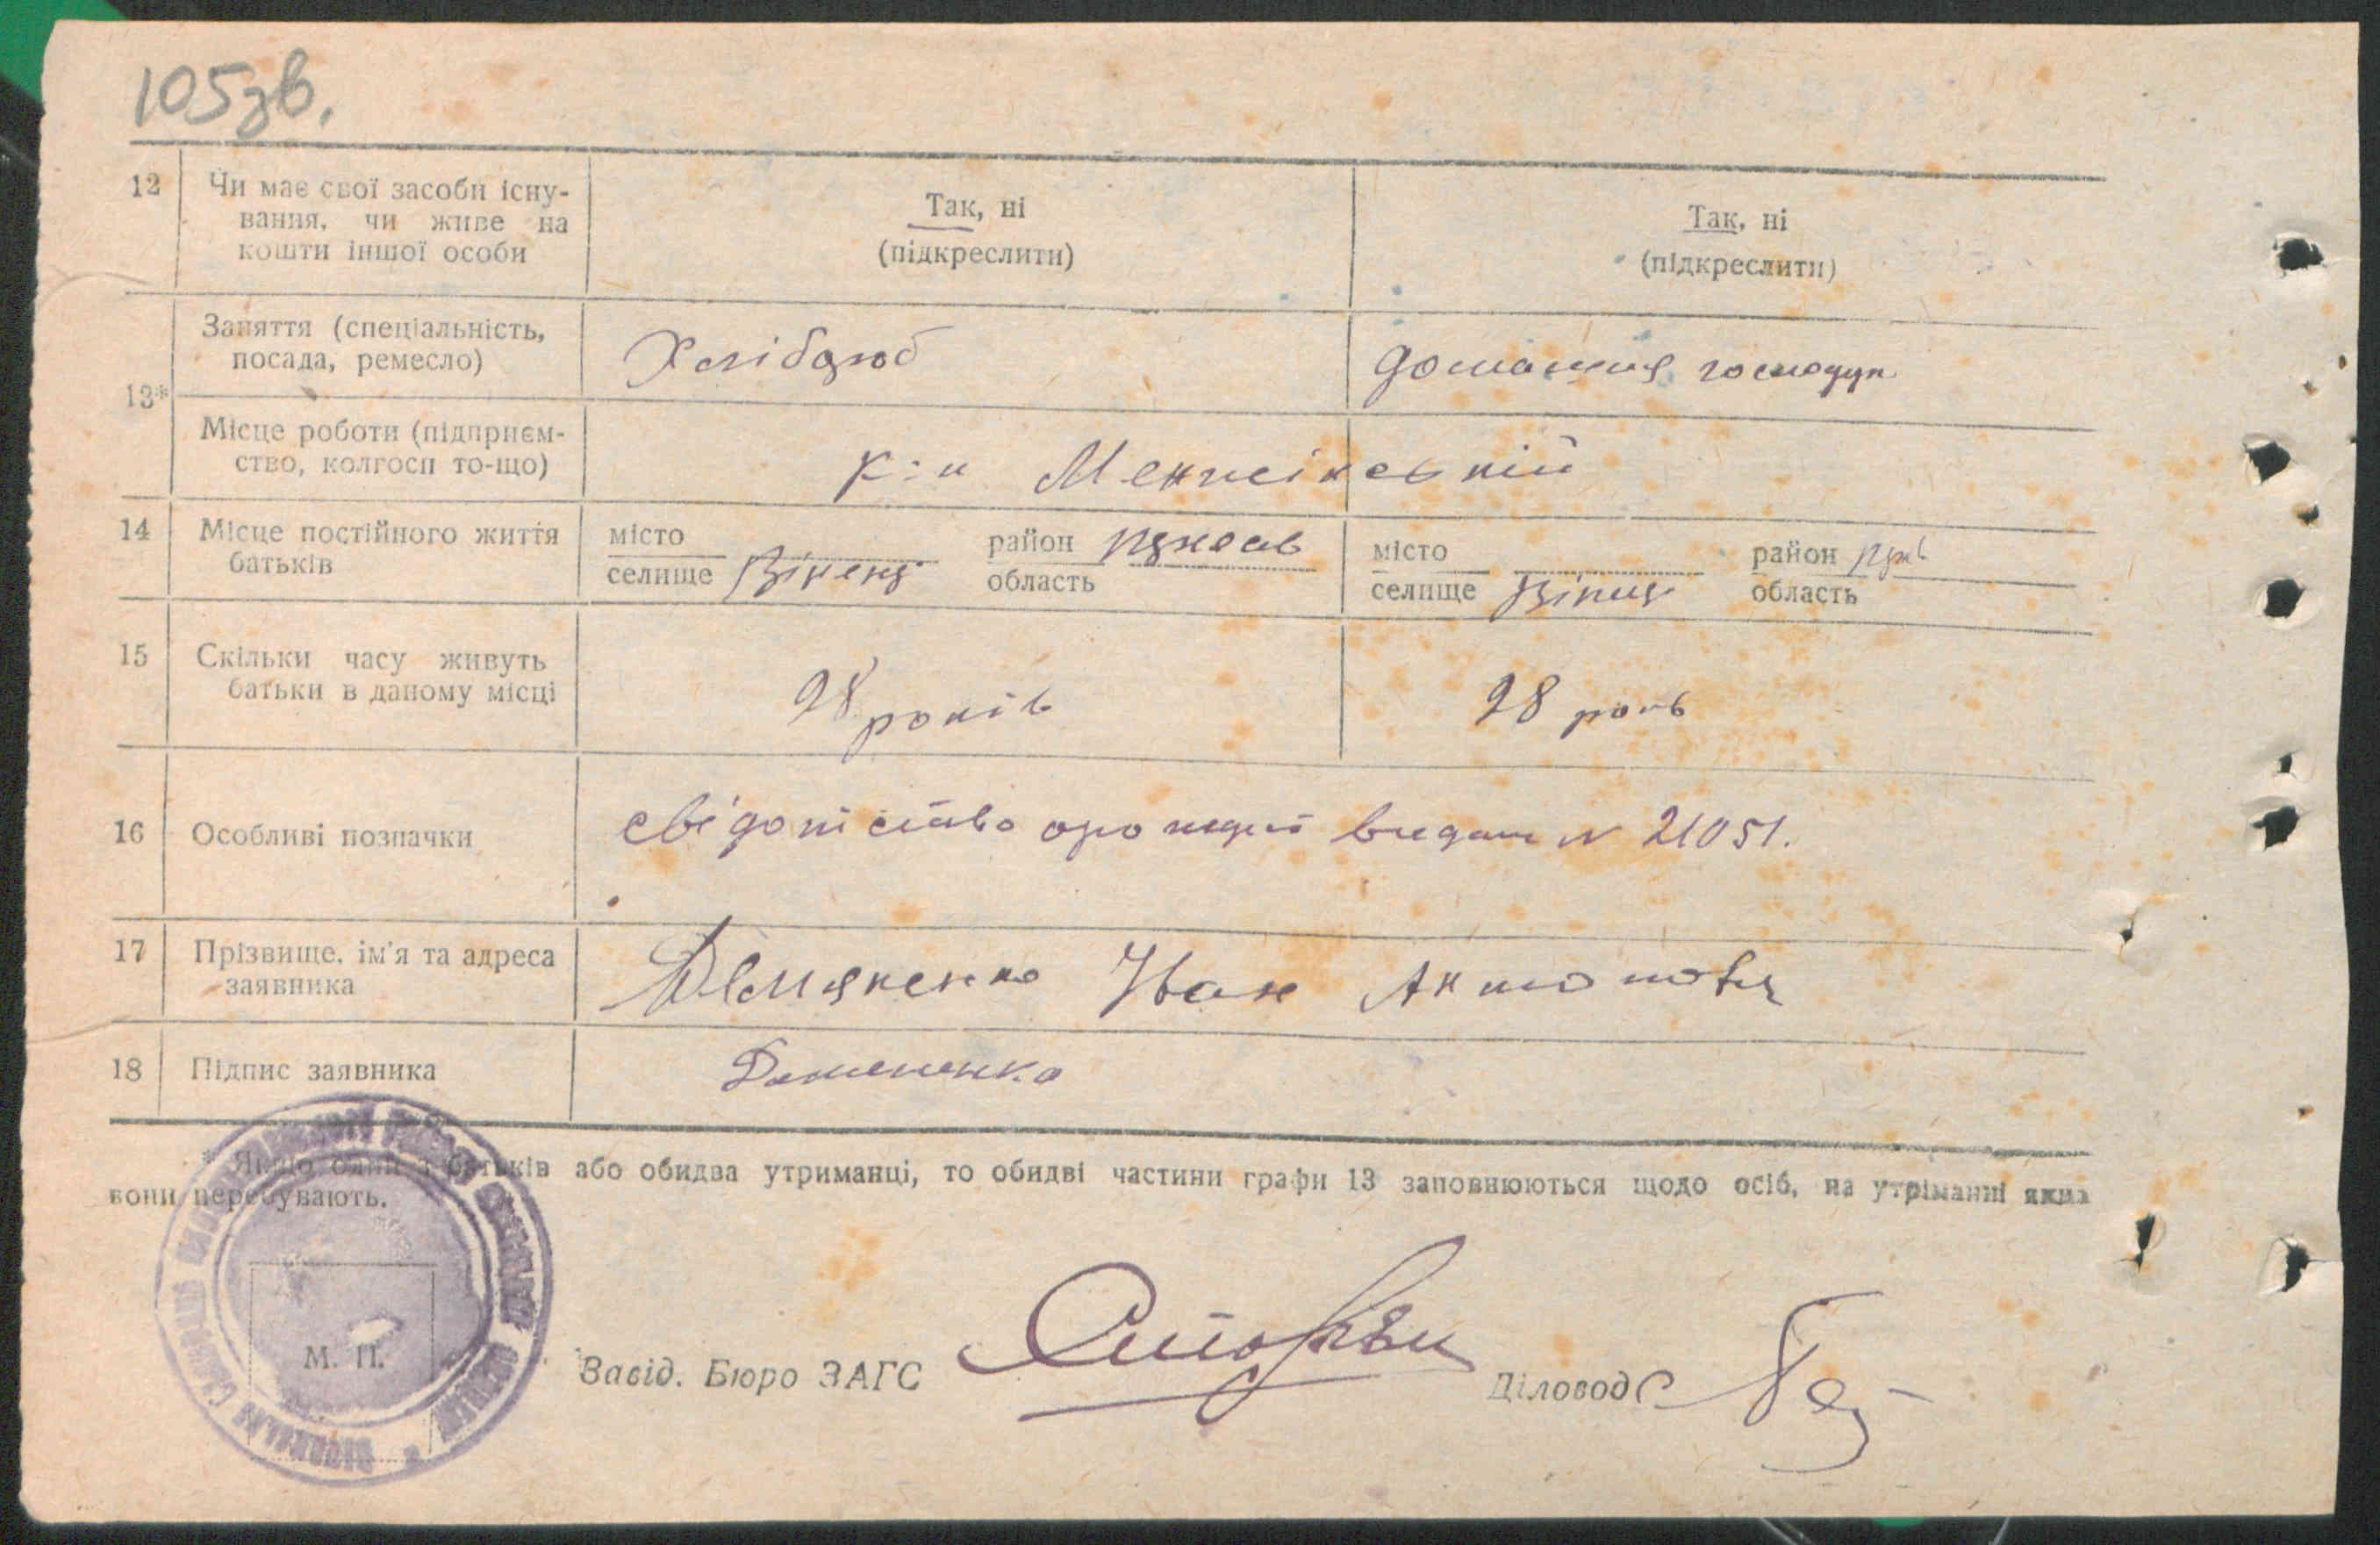 105зв.
12 Чи має свої засоби існу-
вання, чи живе на
кошти іншої особи
Так, ні
(підкреслити)
Так, ні
(підкреслити)
13*
Заняття (спеціальність,
посада, ремесло)
Хлібороб
домашня господун
Місце роботи (підприєм-
ство, колгосп то-що)
14 Місце постійного життя
батьків
місто
селище
район
область
місто
селище
район
область
15 Скільки часу живуть
батьки в даному місці
28 років
28 років
16 Особливі позначки
свідотство про видан N 21051.
17 Прізвище, ім'я та адреса
заявника
Демяненко Іван Антонович
18 Підпис заявника
Демяненко
* Якщо один з батьків або обидва утриманці, то обидві частини графи 13 заповнюються щодо осіб, на утріманні яких
вони перебувають.
М. П.
Завід. Бюро ЗАГС
Діловод